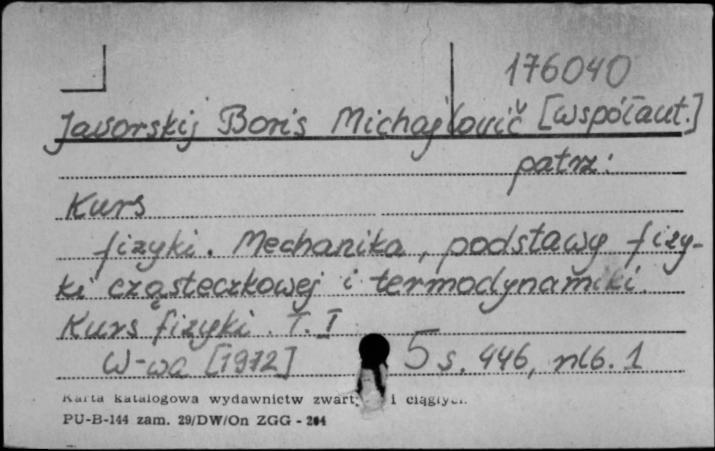 176040
Javorskij Boris Michajlovič [współaut.]
patrz:
Kurs
fizyki. Mechanika, podstawy fizy-
ki cząsteczkowej i termodynamiki.
Kurs fizyki. T. I
W-wa [1972] 5 s. 446, nlb. 1
Karta katalogowa wydawnictw zwart i ciągłych.
PU-B-144 zam. 29/DW/On ZGG - 204